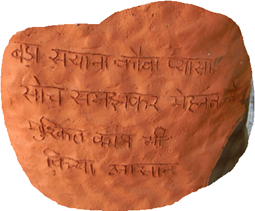 बड़ा सयाना कौवा प्यासा
सोच समझकर मेहनत से
मुश्किल काम भी
किया आसान